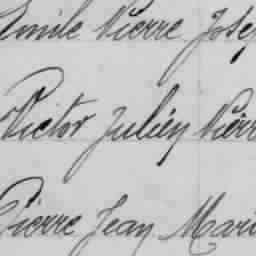 Emile Pierre Josep
Victor Julien Pierr
Pierre Jean Mari